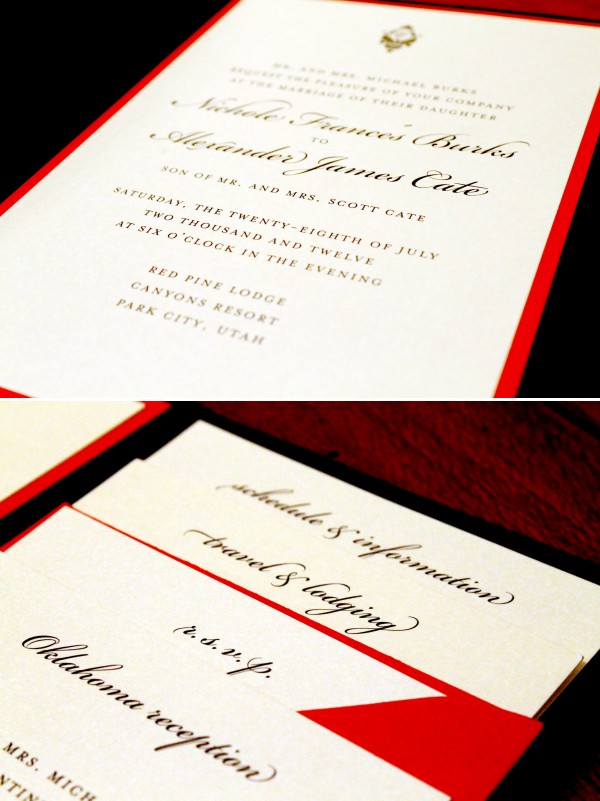 MR. AND MRS. MICHAEL BURKS
REQUEST THE PLEASURE OF YOUR COMPANY
AT THE MARRIAGE OF THEIR DAUGHTER
Nichole Frances Burks
TO
Alexander James Cate
SON OF MR. AND MRS. SCOTT CATE
SATURDAY, THE TWENTY-EIGHTH OF JULY
TWO THOUSAND AND TWELVE
AT SIX O'CLOCK IN THE EVENING
RED PINE LODGE
CANYONS RESORT
PARK CITY, UTAH
schedule & information
travel & lodging
r.s.v.p.
Oklahoma reception
MRS. MICH